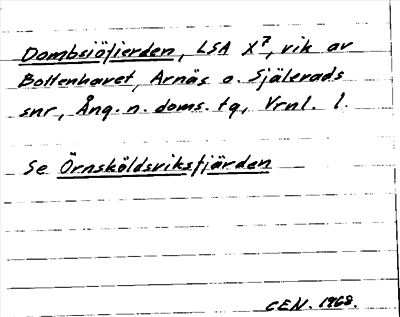 Dombsiöfierden, LSA X7, vik av
Bottenhavet, Arnäs o. Själevads
snr, Ång. n. doms. tg, Vrnl. l.
Se Örnsköldsviksfjärden
CEN. 1968.